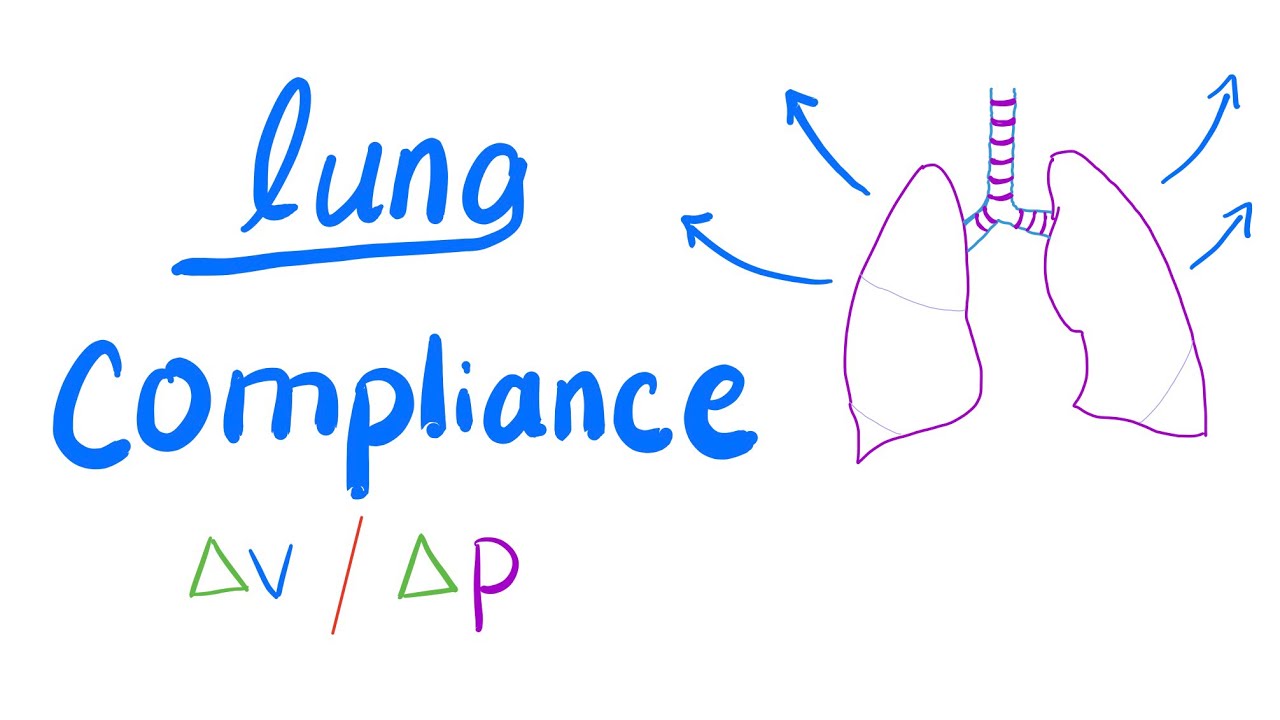 lung
Compliance
Δv / Δp